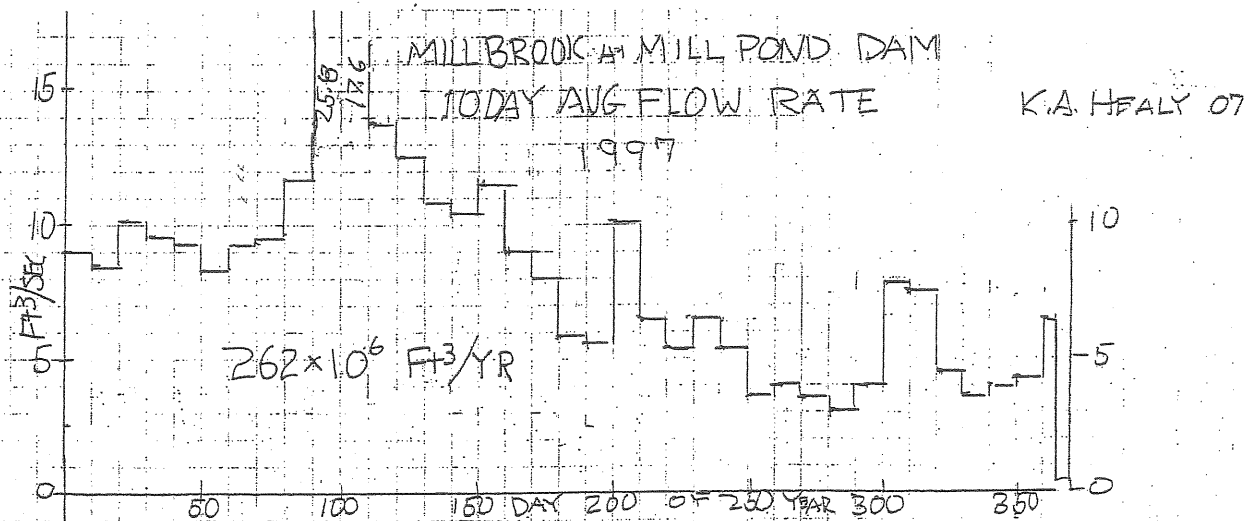 MILLBROOK AT MILL POND DAM
10 DAY AVG FLOW RATE
K.A. HEALY 07
1997
25.8
17.6
15
10
5
0
Ft3/SEC
262×10^6 Ft3/YR
10
5
0
50 100 150 DAY 200 OF 250 YEAR 300 350